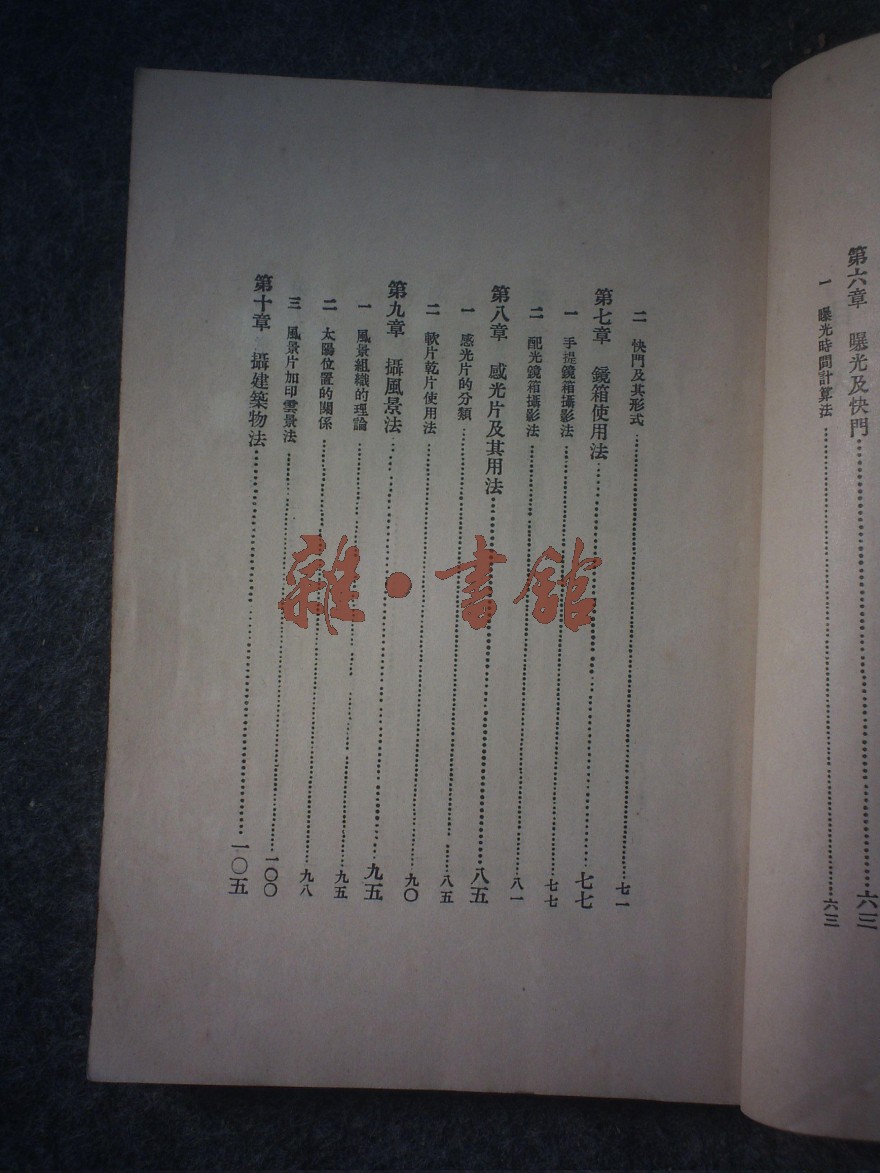 第六章 曝光及快門……六三
一 曝光時間計算法……六三
二 快門及其形式……七一
第七章 鏡箱使用法……七七
一 手提鏡箱攝影法……七七
二 配光鏡箱攝影法……八一
第八章 感光片及其用法……八五
一 感光片的分類……八五
二 軟片乾片使用法……九〇
第九章 攝風景法……九五
一 風景組織的理論……九五
二 太陽位置的關係……九八
三 風景片加印雲景法……一〇〇
第十章 攝建築物法……一〇五
雜·書館